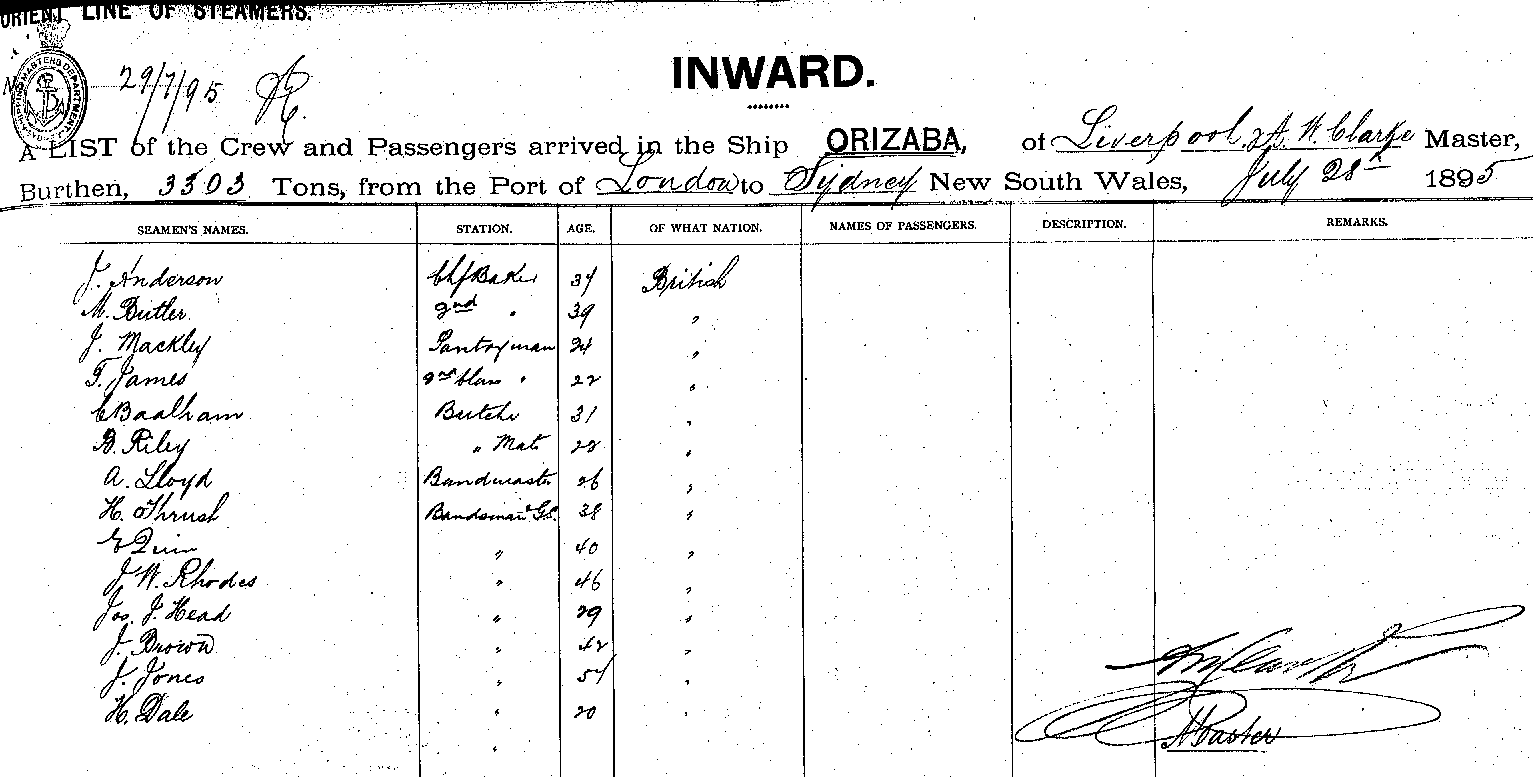 ORIENT LINE OF STEAMERS.
29/7/95
INWARD.
A LIST of the Crew and Passengers arrived in the Ship ORIZABA, of Liverpool, A. W. Clarke Master,
Burthen, 3303 Tons, from the Port of London to Sydney New South Wales, July 28th 1895
SEAMEN'S NAMES. STATION. AGE. OF WHAT NATION. NAMES OF PASSENGERS. DESCRIPTION. REMARKS.
J. Anderson Chf Baker 37 British
M. Butler 2nd " 39 "
J. Mackley Pantryman 24 "
T. James 2nd Class " 22 "
C Baalham Butcher 31 "
B. Riley " Mate 28 "
A. Lloyd Bandmaster 26 "
H. Thrush Bandsman G.S. 38 "
E Quin " 40 "
J. W. Rhodes " 46 "
Jos. J. Head " 29 "
J. Brown " 42 "
J. Jones " 57 "
H. Dale " 20 "
"
Master